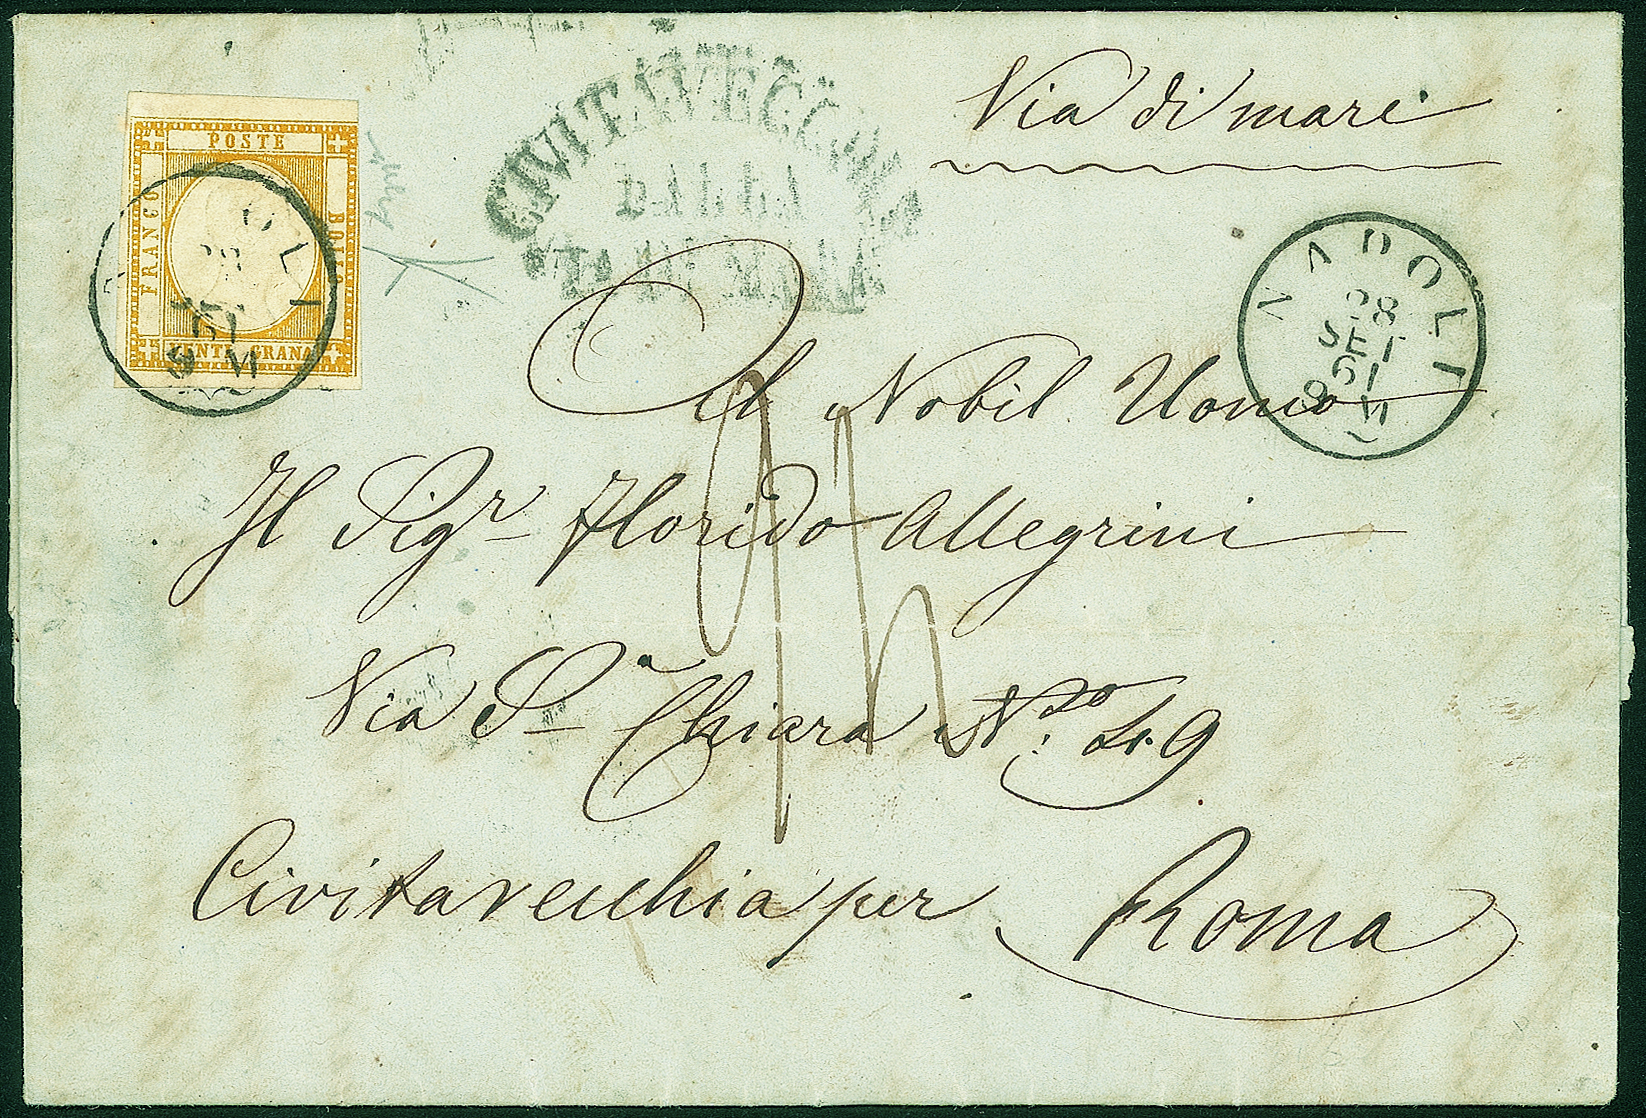 Via di mare
POSTE
FRANCO
BOLLO
VENTI GRANA
CIVITAVECCHIA
DALLA
VIA DI MARE
NAPOLI
28
SET
61
8 M
Al Nobil Uomo
Il Sigr Florido Allegrini
Via S. Chiara No. 49
Civitavecchia per Roma